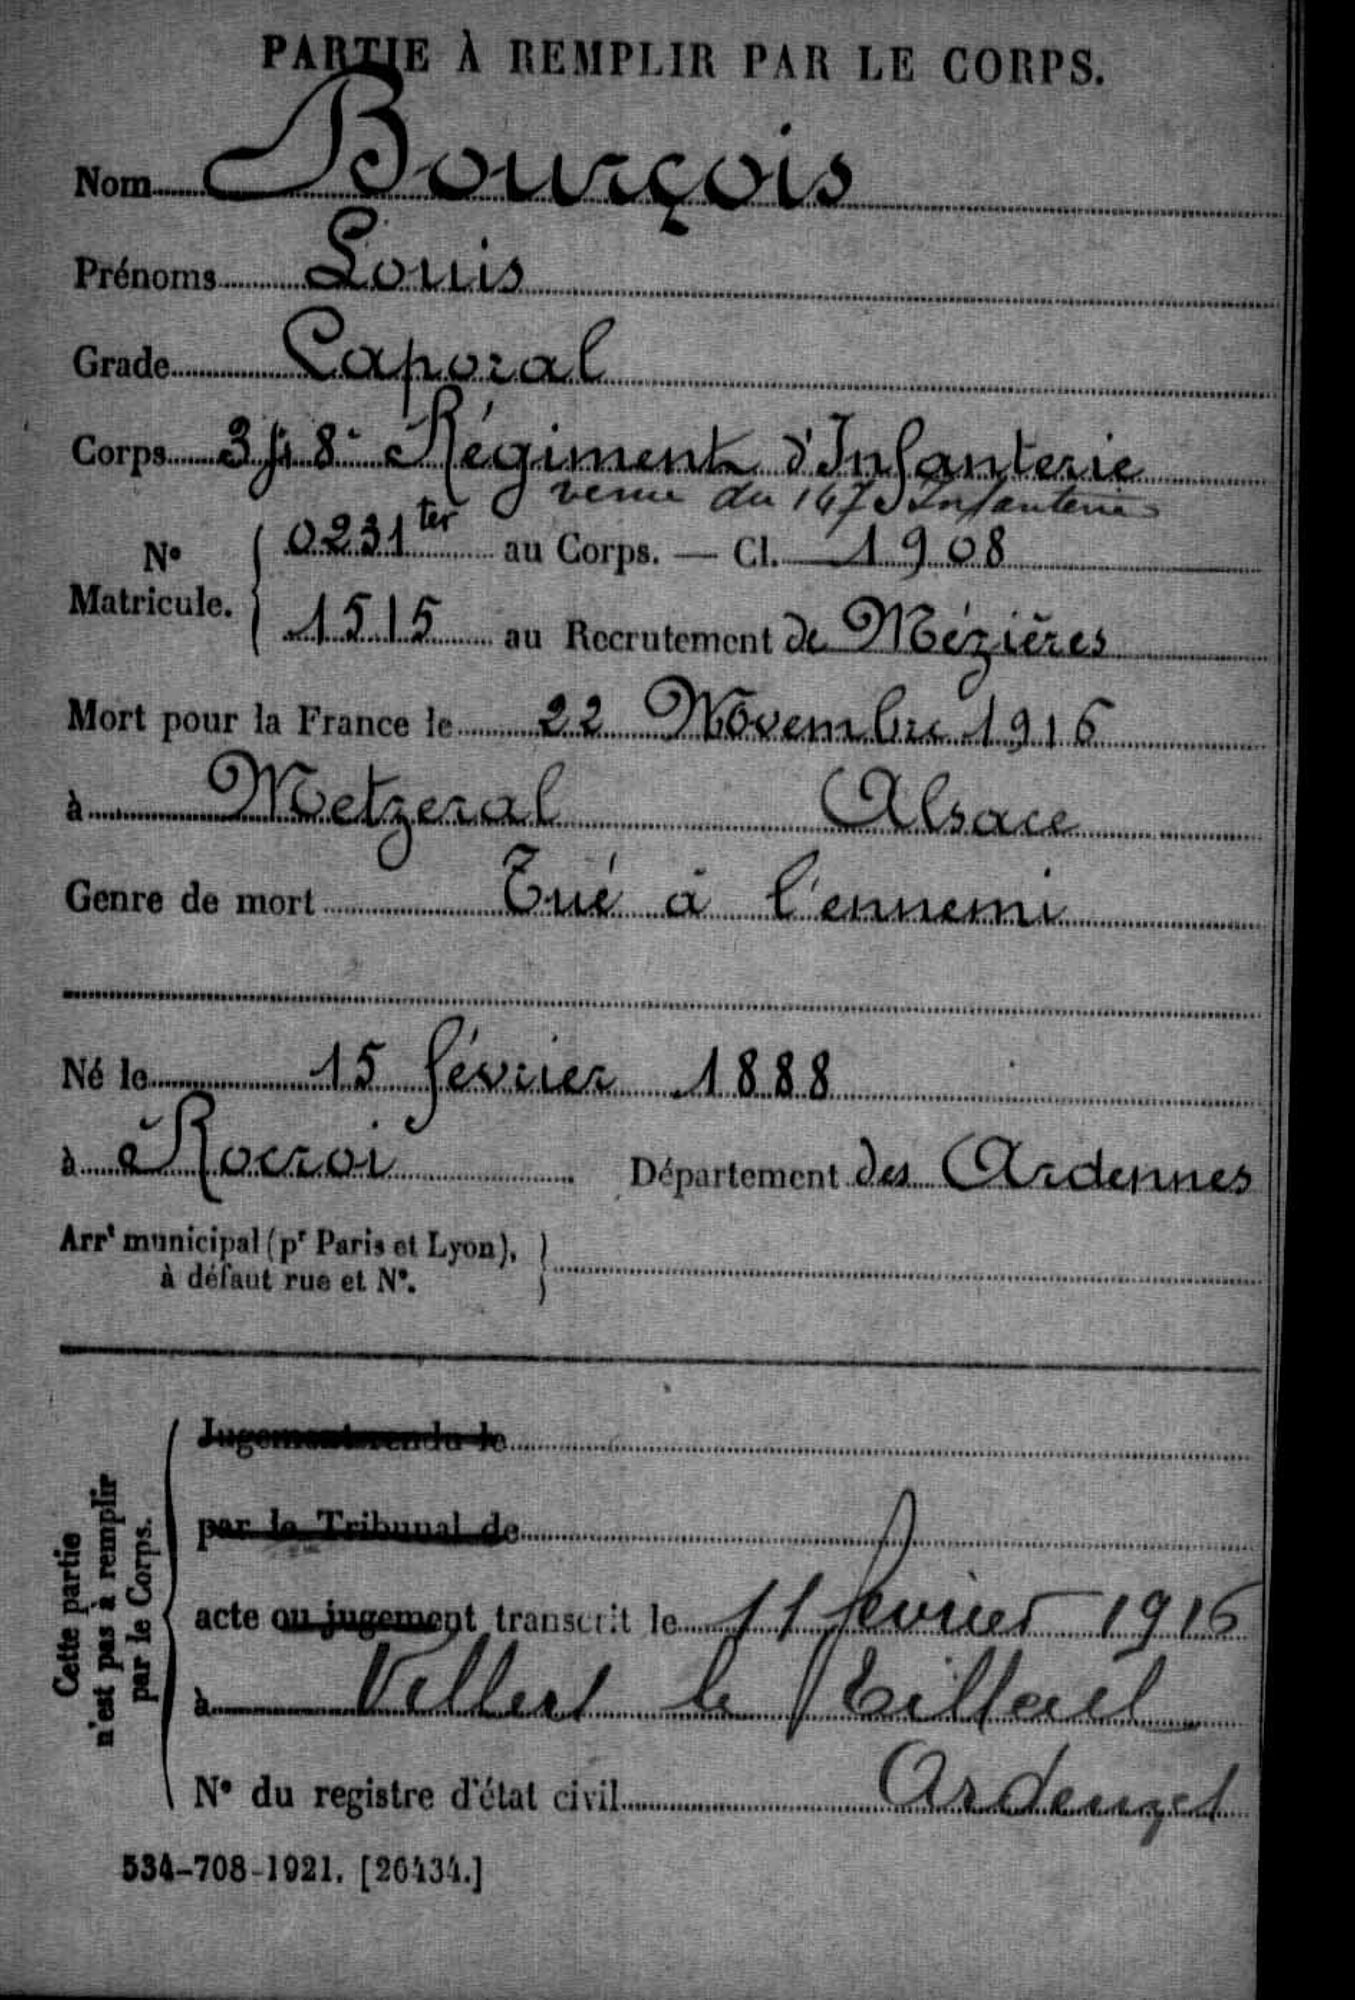 PARTIE À REMPLIR PAR LE CORPS.
Nom Bourçois
Prénoms Louis
Grade Caporal
Corps 348e Régiment d'Infanterie
venu du 147e Infanterie
N° Matricule. 0231 ter au Corps. — Cl. 1908
1515 au Recrutement de Mézières
Mort pour la France le 22 Novembre 1915
à Metzeral Alsace
Genre de mort Tué à l'ennemi
Né le 15 février 1888
à Rocroi Département des Ardennes
Arrt municipal (pr Paris et Lyon),
à défaut rue et N°.
Cette partie
n'est pas à remplir
par le Corps.
Jugement rendu le
par le Tribunal de
acte ou jugement transcrit le 11 février 1916
à Villers le Tilleul
N° du registre d'état civil Ardennes
534-708-1921. [26434.]